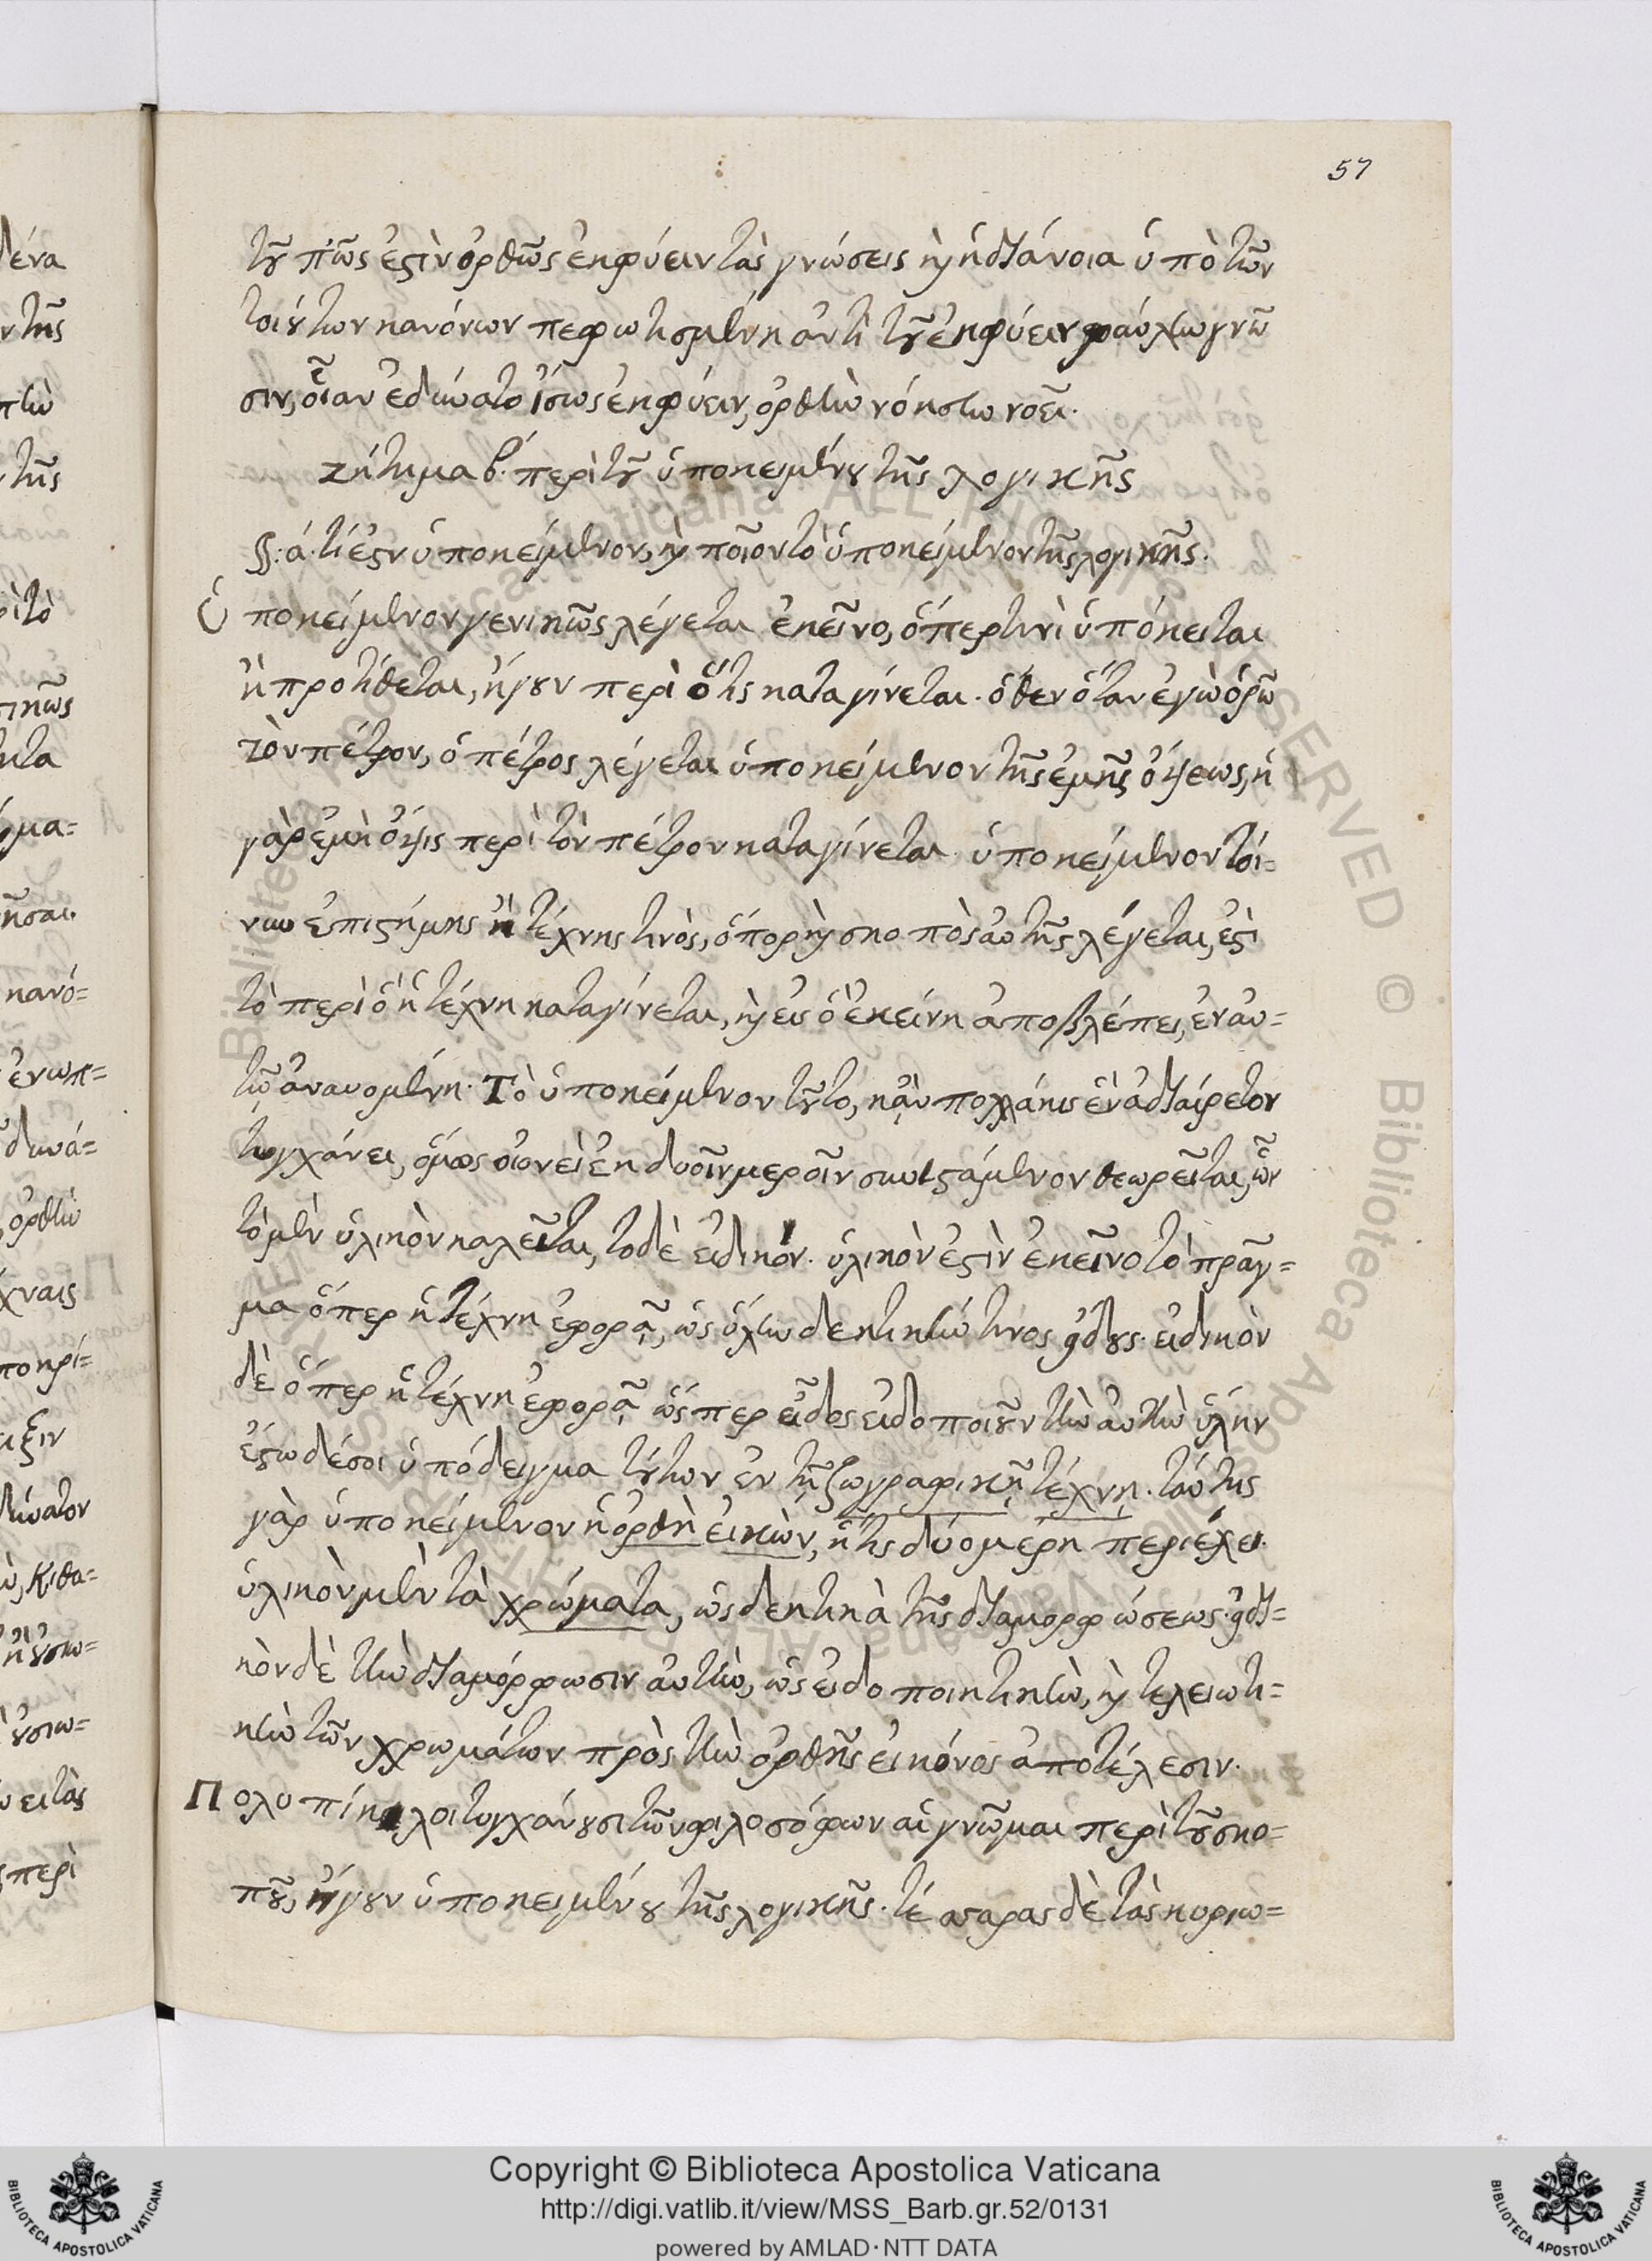 57
τοῦ πῶς ἐστὶν ὀρθῶς ἐκφύειν τὰς γνώσεις καὶ ἡ διάνοια ὑπὸ τῶν
τοιούτων κανόνων πεφωτισμένη ἀντὶ τοῦ ἐκφύειν φαύλην γνῶ
σιν, οἵαν ἐδύνατο ἴσως ἐκφύειν, ὀρθὴν νόησιν νοεῖ.
ζήτημα β. περὶ τοῦ ὑποκειμένου τῆς λογικῆς
§: ά. τί ἐστιν ὑποκείμενον, καὶ ποῖον τὸ ὑποκείμενον τῆς λογικῆς.
Ὑποκείμενον γενικῶς λέγεται ἐκεῖνο, ὅπερ τινὶ ὑπόκειται
ἢ προτίθεται, ἤγουν περὶ ὅ τις καταγίνεται. ὅθεν ὅταν ἐγὼ ὁρῶ
τὸν πέτρον, ὁ πέτρος λέγεται ὑποκείμενον τῆς ἐμῆς ὄψεως, ἡ
γὰρ ἐμὴ ὄψις περὶ τὸν πέτρον καταγίνεται. ὑποκείμενον τοί=
νυν ἐπιστήμης ἢ τέχνης τινὸς, ὅπερ καὶ σκοπὸς αὐτῆς λέγεται, ἐστὶ
τὸ περὶ ὃ ἡ τέχνη καταγίνεται, καὶ εἰς ὃ ἐκείνη ἀποβλέπει, ἐν αὐ=
τῷ ἀναυομένη. Τὸ ὑποκείμενον τοῦτο, κᾂν πολλάκις ἓν ἀδιαίρετον
τυγχάνει, ὅμως οἱονεὶ ἐκ δυοῖν μεροῖν συνιστάμενον θεωρεῖται, ὧν
τὸ μὲν ὑλικὸν καλεῖται, τὸ δὲ εἰδικόν. ὑλικὸν ἐστὶν ἐκεῖνο τὸ πρᾶγ=
μα ὅπερ ἡ τέχνη ἐφορᾷ, ὡς ὕλην δεκτικήν τινος εἴδους. εἰδικὸν
δὲ ὅπερ ἡ τέχνη ἐφορᾷ ὥσπερ εἶδος εἰδοποιοῦν τὴν αὐτὴν ὕλην
ἔστω δέ σοι ὑπόδειγμα τούτων ἐν τῇ ζωγραφικῇ τέχνῃ. ταύτης
γὰρ ὑποκείμενον ἡ ὀρθὴ εἰκὼν, ἥτις δύο μέρη περιέχει.
ὑλικὸν μὲν τὰ χρώματα, ὡς δεκτικὰ τῆς διαμορφώσεως. εἰδι=
κὸν δὲ τὴν διαμόρφωσιν αὐτὴν, ὡς εἰδοποιητικὴν, καὶ τελειωτι=
κὴν τῶν χρωμάτων πρὸς τὴν ὀρθῆς εἰκόνος ἀποτέλεσιν.
Πολυποίκιλοι τυγχάνουσι τῶν φιλοσόφων αἱ γνῶμαι περὶ τοῦ σκο=
ποῦ, ἤγουν ὑποκειμένου τῆς λογικῆς. τέσσαρας δὲ τὰς κυριω=
Copyright © Biblioteca Apostolica Vaticana
http://digi.vatlib.it/view/MSS_Barb.gr.52/0131
powered by AMLAD·NTT DATA
BIBLIOTECA APOSTOLICA VATICANA
BIBLIOTECA APOSTOLICA VATICANA